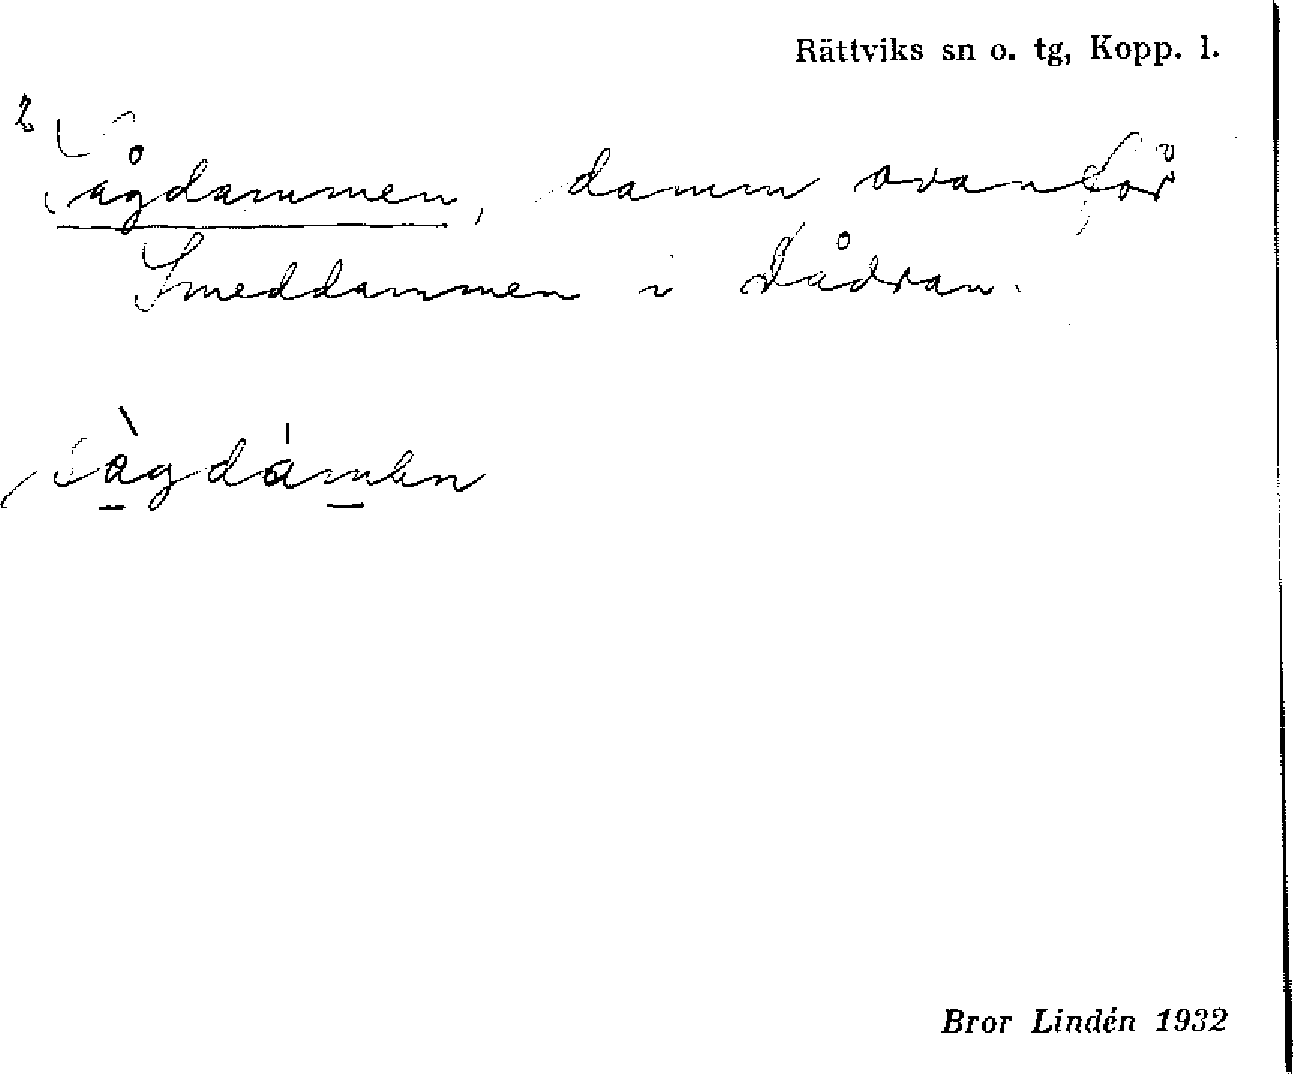 Rättviks sn o. tg, Kopp. l.
2 Sågdammen, damm ovanför
Smeddammen i Dådran.
Bror Lindén 1932